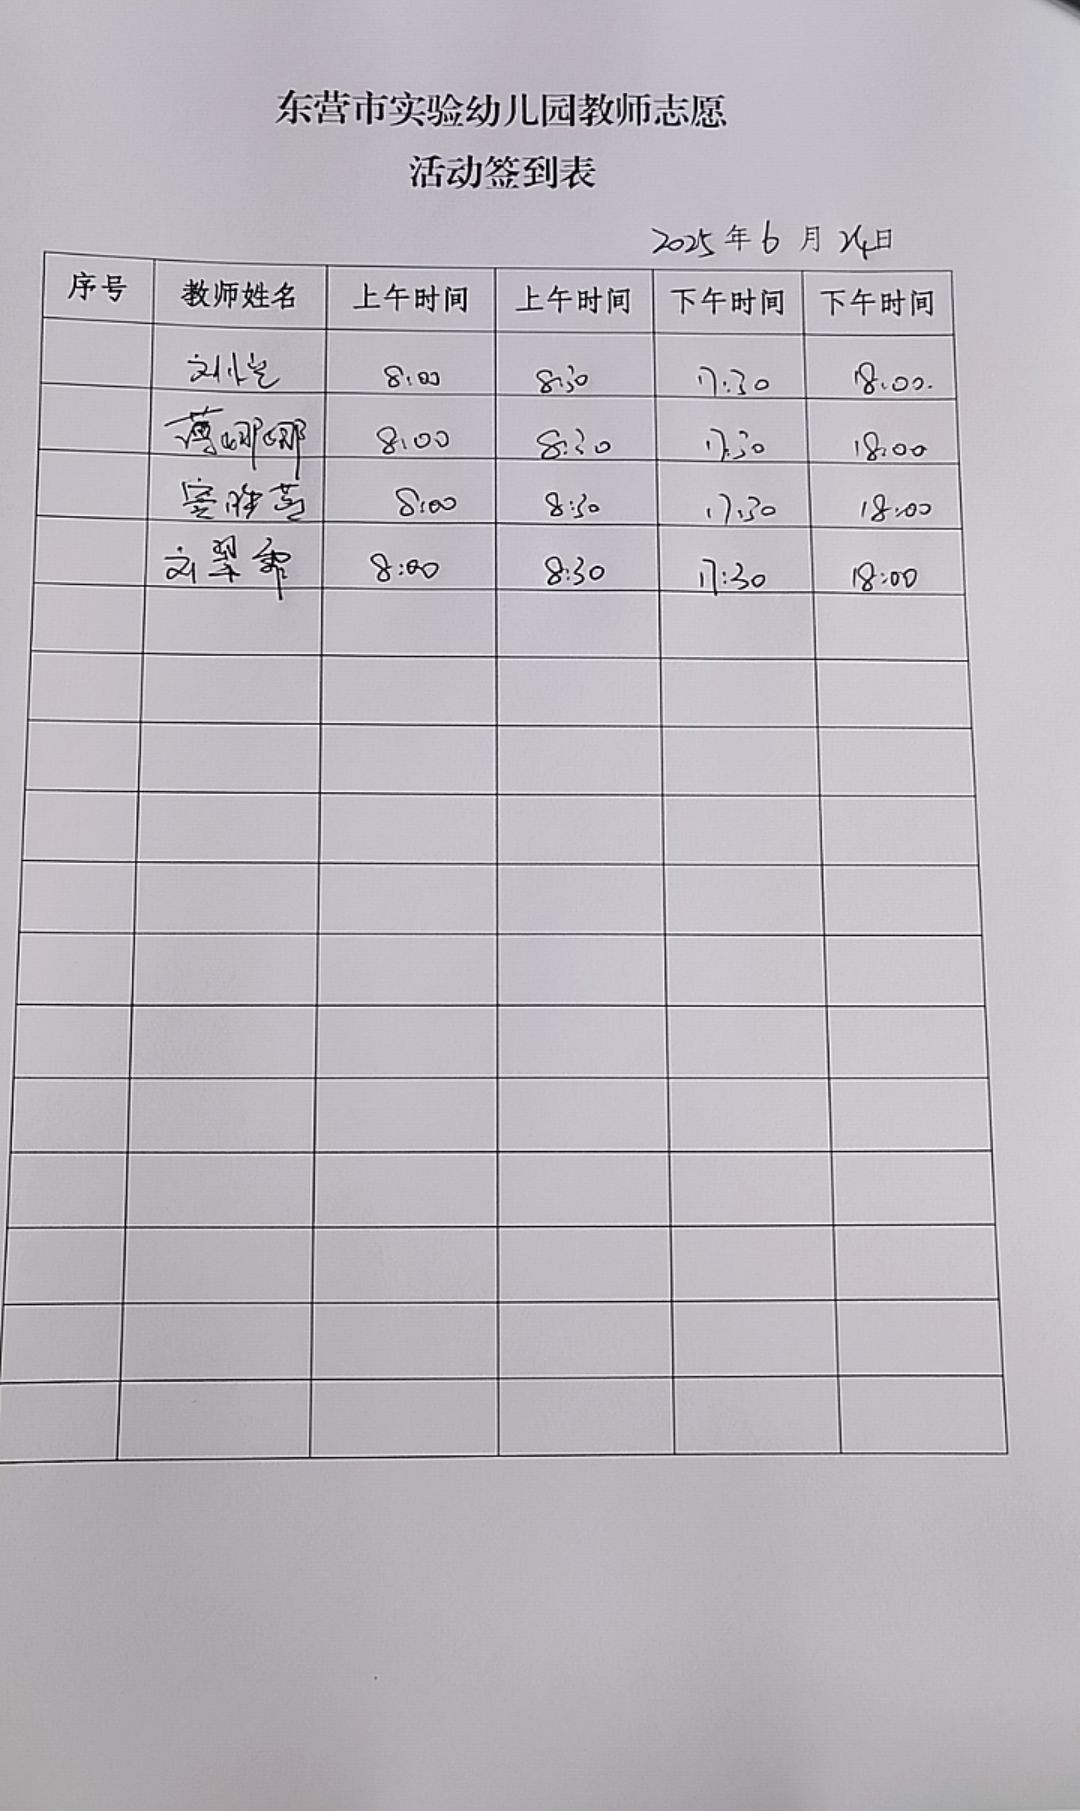 东营市实验幼儿园教师志愿
活动签到表
2025年6月24日
序号 教师姓名 上午时间 上午时间 下午时间 下午时间
刘 8:00 8:30 17:30 18:00.
薄娜娜 8:00 8:30 17:30 18:00
8:00 8:30 17:30 18:00
刘翠霞 8:00 8:30 17:30 18:00